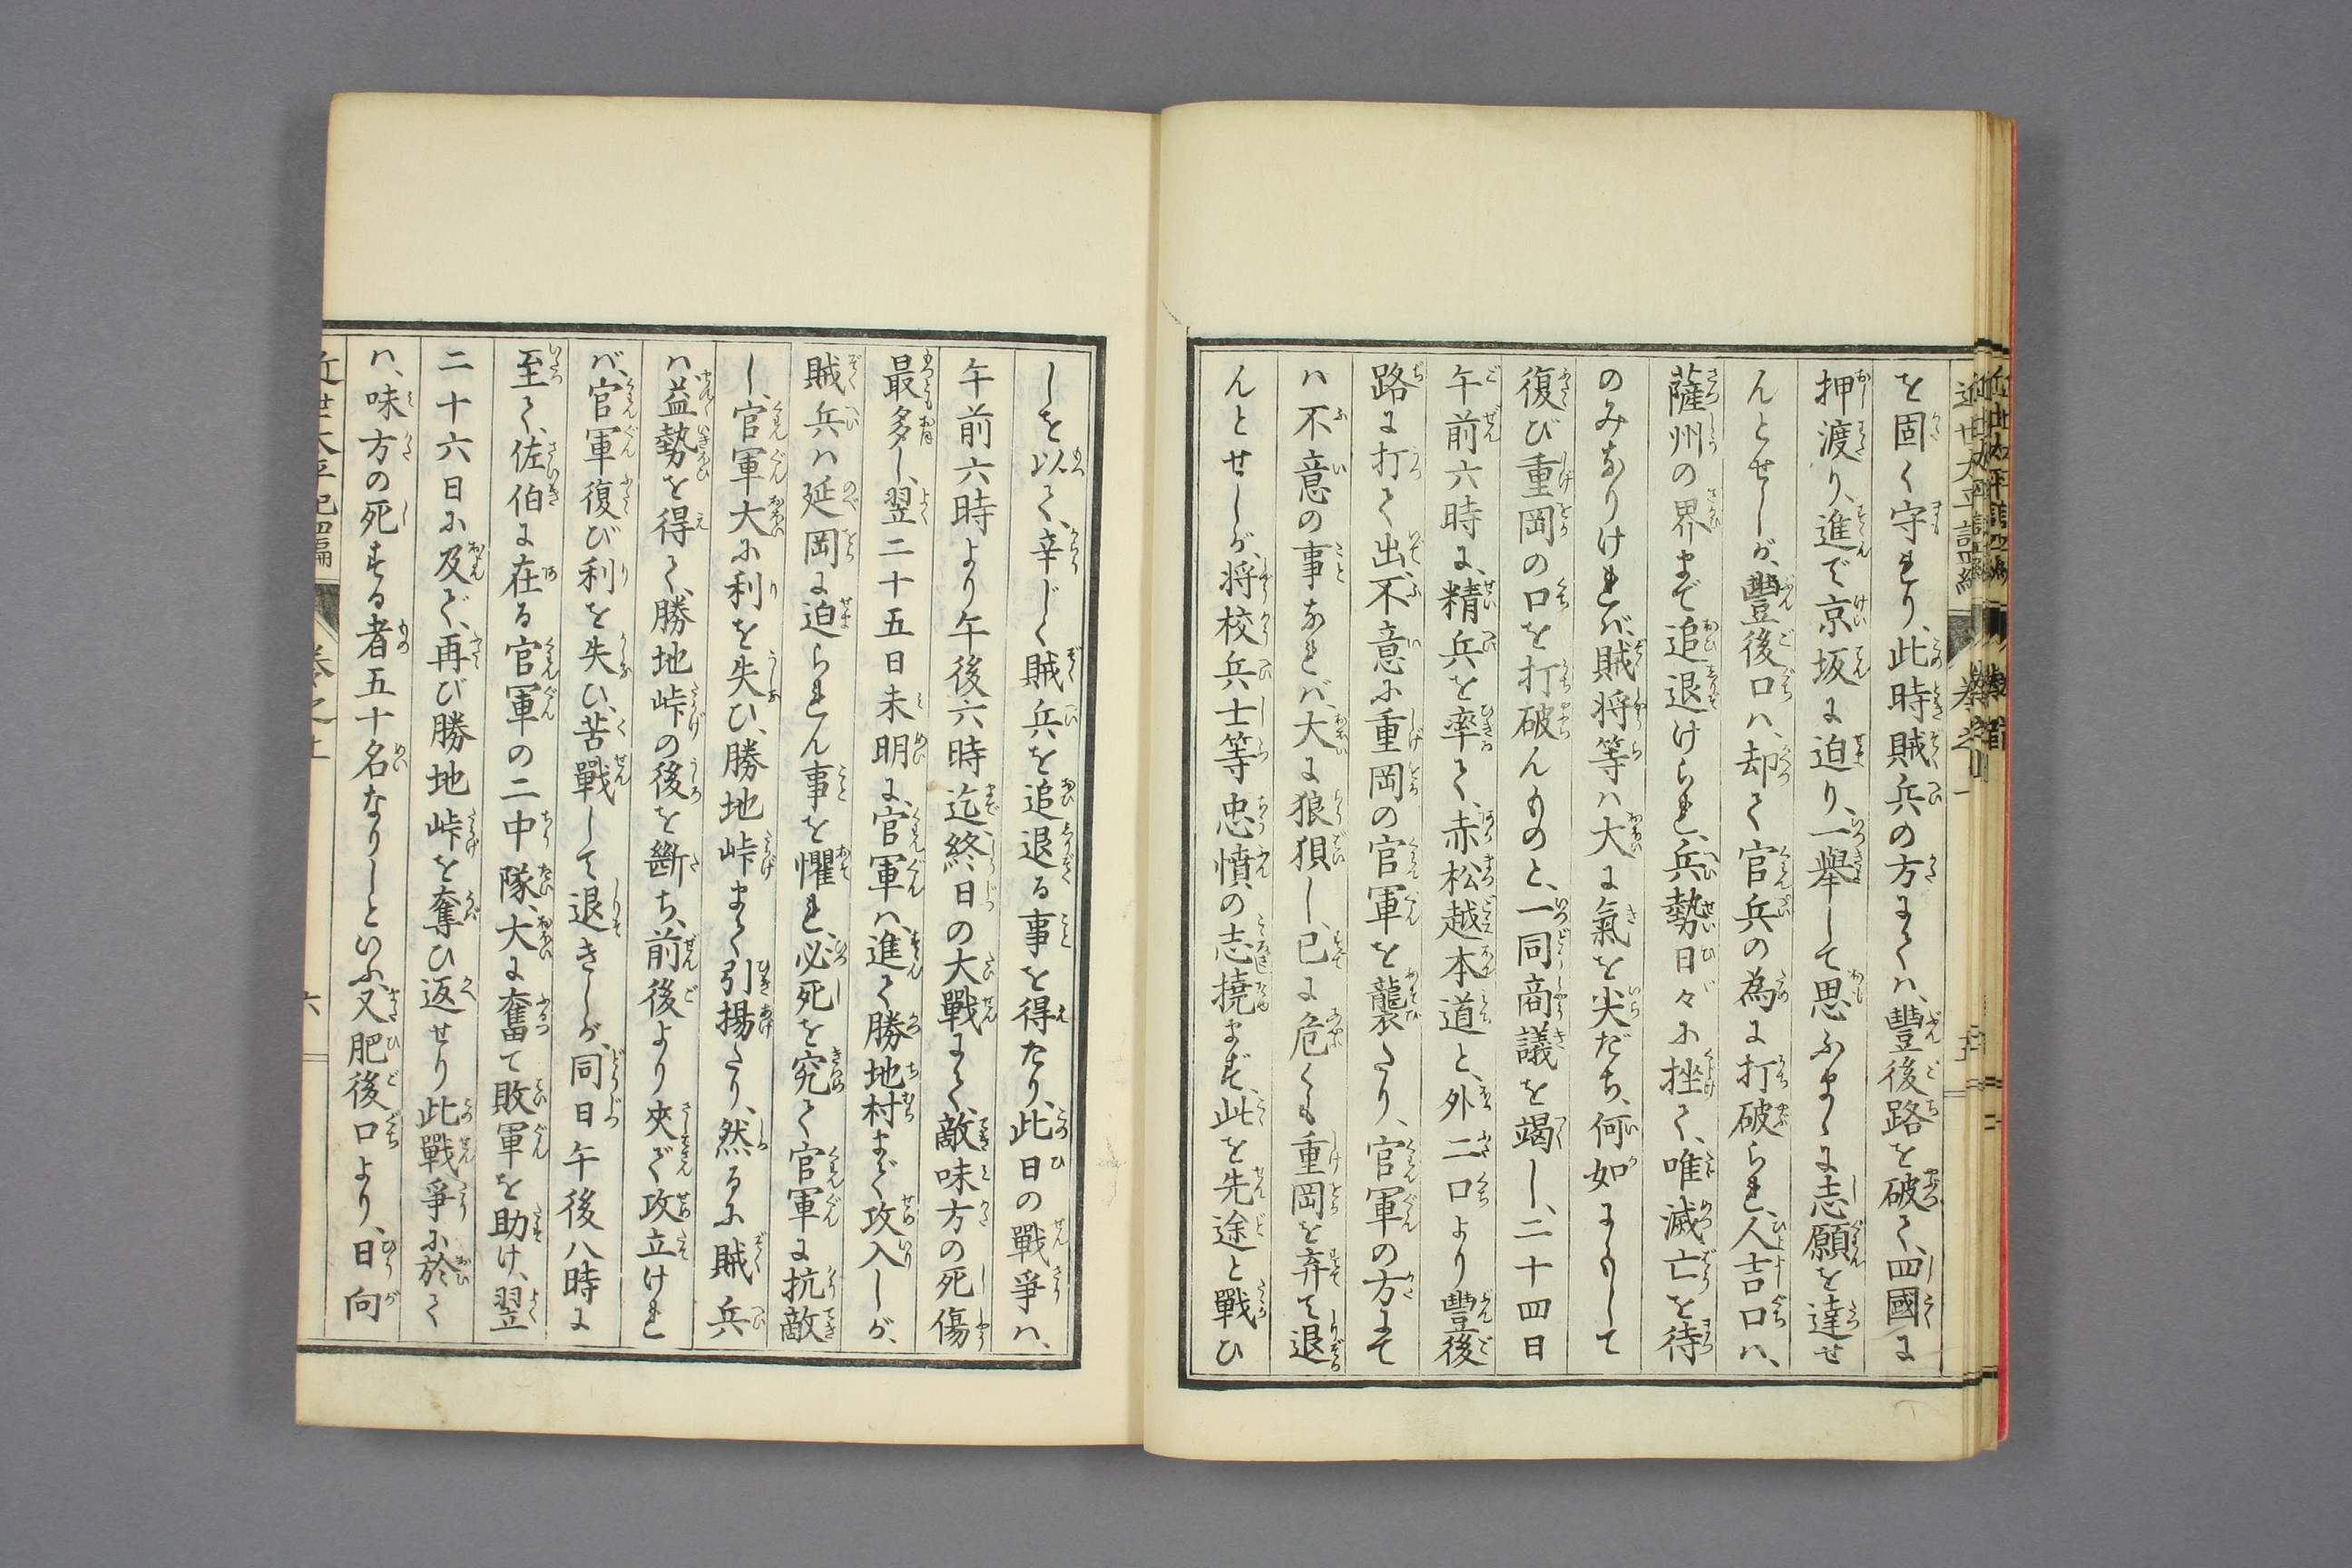 を固く守れり、此時賊兵の方にてハ、豐後路を破て、四國に
押渡り、進で京坂に迫り、一舉して思ふまゝに志願を達せ
んとせしが、豐後口ハ、却て官兵の為に打破られ、人吉口ハ、
薩州の界まで追退けられ、兵勢日々に挫けて、唯滅亡を待
のみなりけれバ、賊将等ハ大に氣を尖だち、何如にもして
復び重岡の口を打破んものと、一同商議を竭し、二十四日
午前六時に、精兵を率て、赤松越本道と、外二口より豐後
路に打て出、不意に重岡の官軍を襲たり、官軍の方にて
ハ不意の事なれバ、大に狼狽し、已に危くも重岡を弃て退
んとせしが、将校兵士等忠憤の志撓まず、此を先途と戰ひ
しを以て、辛じく賊兵を追退る事を得たり、此日の戰爭ハ、
午前六時より午後六時迄、終日の大戰にて、敵味方の死傷
最多し、翌二十五日未明に、官軍ハ、進て勝地村まで攻入しが、
賊兵ハ延岡に迫られん事を懼れ、必死を究て官軍に抗敵
し、官軍大に利を失ひ、勝地峠まて引揚たり、然るに賊兵
ハ、益勢を得て、勝地峠の後を斷ち、前後より夾で攻立けれ
バ、官軍復び利を失ひ、苦戰して退きしが、同日午後八時に
至て、佐伯に在る官軍の二中隊、大に奮て敗軍を助け、翌
二十六日に及で、再び勝地峠を奪ひ返せり此戰爭に於て
ハ、味方の死する者五十名なりしといふ、又肥後口より、日向
近世太平記四編
巻之上
六